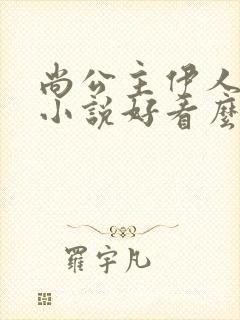 尚公主伊人
小說好看麼
羅宇凡